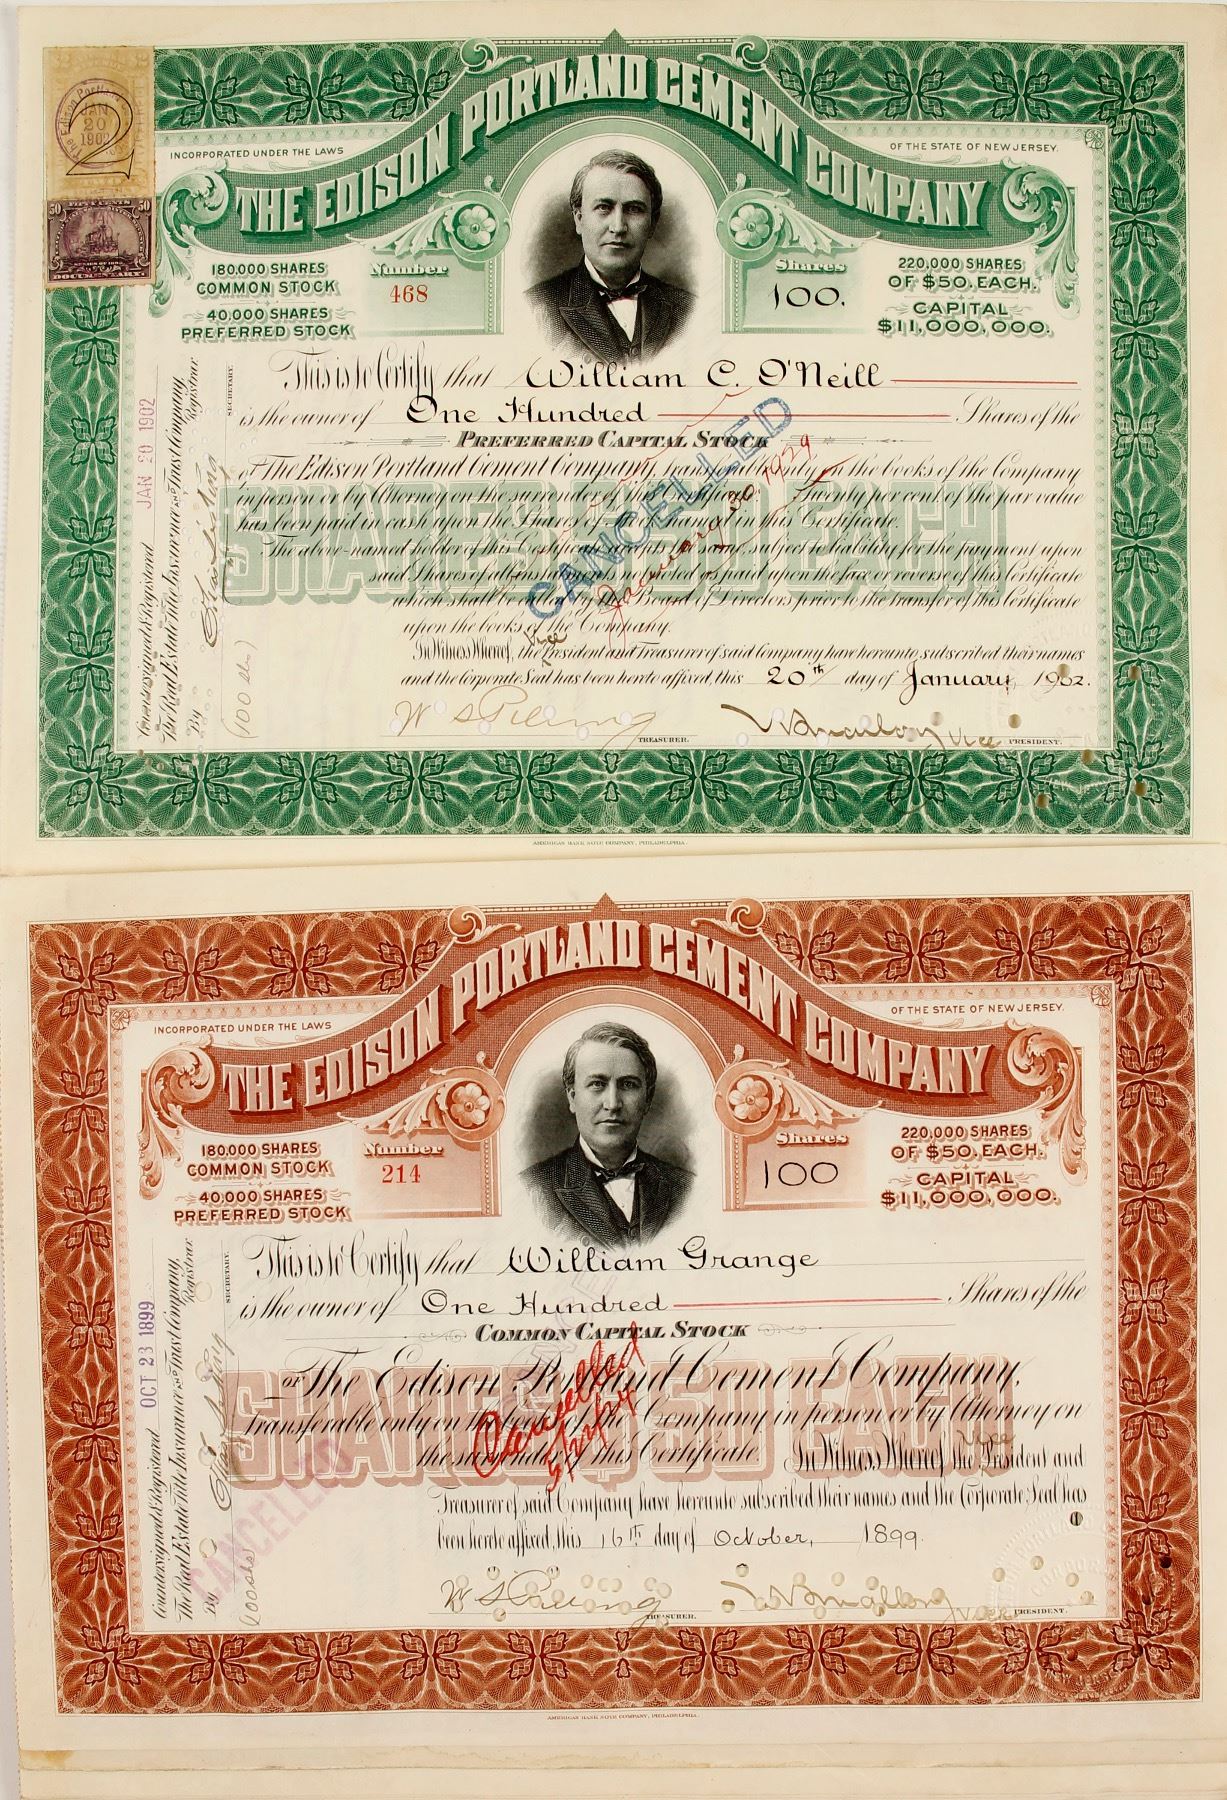 THE EDISON PORTLAND CEMENT COMPANY
INCORPORATED UNDER THE LAWS
OF THE STATE OF NEW JERSEY.
$2 $2
The Edison Portland
JAN
20
1902
2
50 FIFTY CENTS 50
DOCUMENTARY
180,000 SHARES
COMMON STOCK
40,000 SHARES
PREFERRED STOCK
Number
468
Shares
100.
220,000 SHARES
OF $50. EACH.
CAPITAL
$11,000,000.
This is to Certify that William C. O'Neill
is the owner of One Hundred Shares of the
PREFERRED CAPITAL STOCK
of The Edison Portland Cement Company, transferable only on the books of the Company
in person or by Attorney on the surrender of this Certificate. Twenty per cent of the par value
has been paid in cash upon the Shares of Stock named in this Certificate.
The above-named holder of this Certificate accepts the same, subject to liability for the payment upon
said Shares of all instalments not noted as paid upon the face or reverse of this Certificate
which shall be called by the Board of Directors prior to the transfer of this Certificate
upon the books of the Company.
In Witness Whereof, the Vice President and Treasurer of said Company have hereunto subscribed their names
and the Corporate Seal has been hereto affixed, this 20th day of January, 1902.
SHARES $50 EACH
CANCELLED
January 30, 1929
W S Pilling
TREASURER.
W S Mallory Vice
PRESIDENT.
Countersigned & Registered JAN 20 1902
The Real Estate Title Insurance and Trust Company,
Registrar
By
SECRETARY.
(100 shs)
AMERICAN BANK NOTE COMPANY, PHILADELPHIA.
THE EDISON PORTLAND CEMENT COMPANY
INCORPORATED UNDER THE LAWS
OF THE STATE OF NEW JERSEY.
180,000 SHARES
COMMON STOCK
40,000 SHARES
PREFERRED STOCK
Number
214
Shares
100
220,000 SHARES
OF $50. EACH.
CAPITAL
$11,000,000.
This is to Certify that William Grange
is the owner of One Hundred Shares of the
COMMON CAPITAL STOCK
OF The Edison Portland Cement Company,
Transferable only on the books of the Company in person or by Attorney on
the surrender of this Certificate. In Witness Whereof the Vice President and
Treasurer of said Company have hereunto subscribed their names and the Corporate Seal has
been hereto affixed, this 16th day of October, 1899.
SHARES $50 EACH
Cancelled
CANCELLED
W S Pilling
TREASURER.
W S Mallory Vice
PRESIDENT.
Countersigned & Registered OCT 23 1899
The Real Estate Title Insurance and Trust Company,
Registrar
By
SECRETARY.
(100 shs)
AMERICAN BANK NOTE COMPANY, PHILADELPHIA.